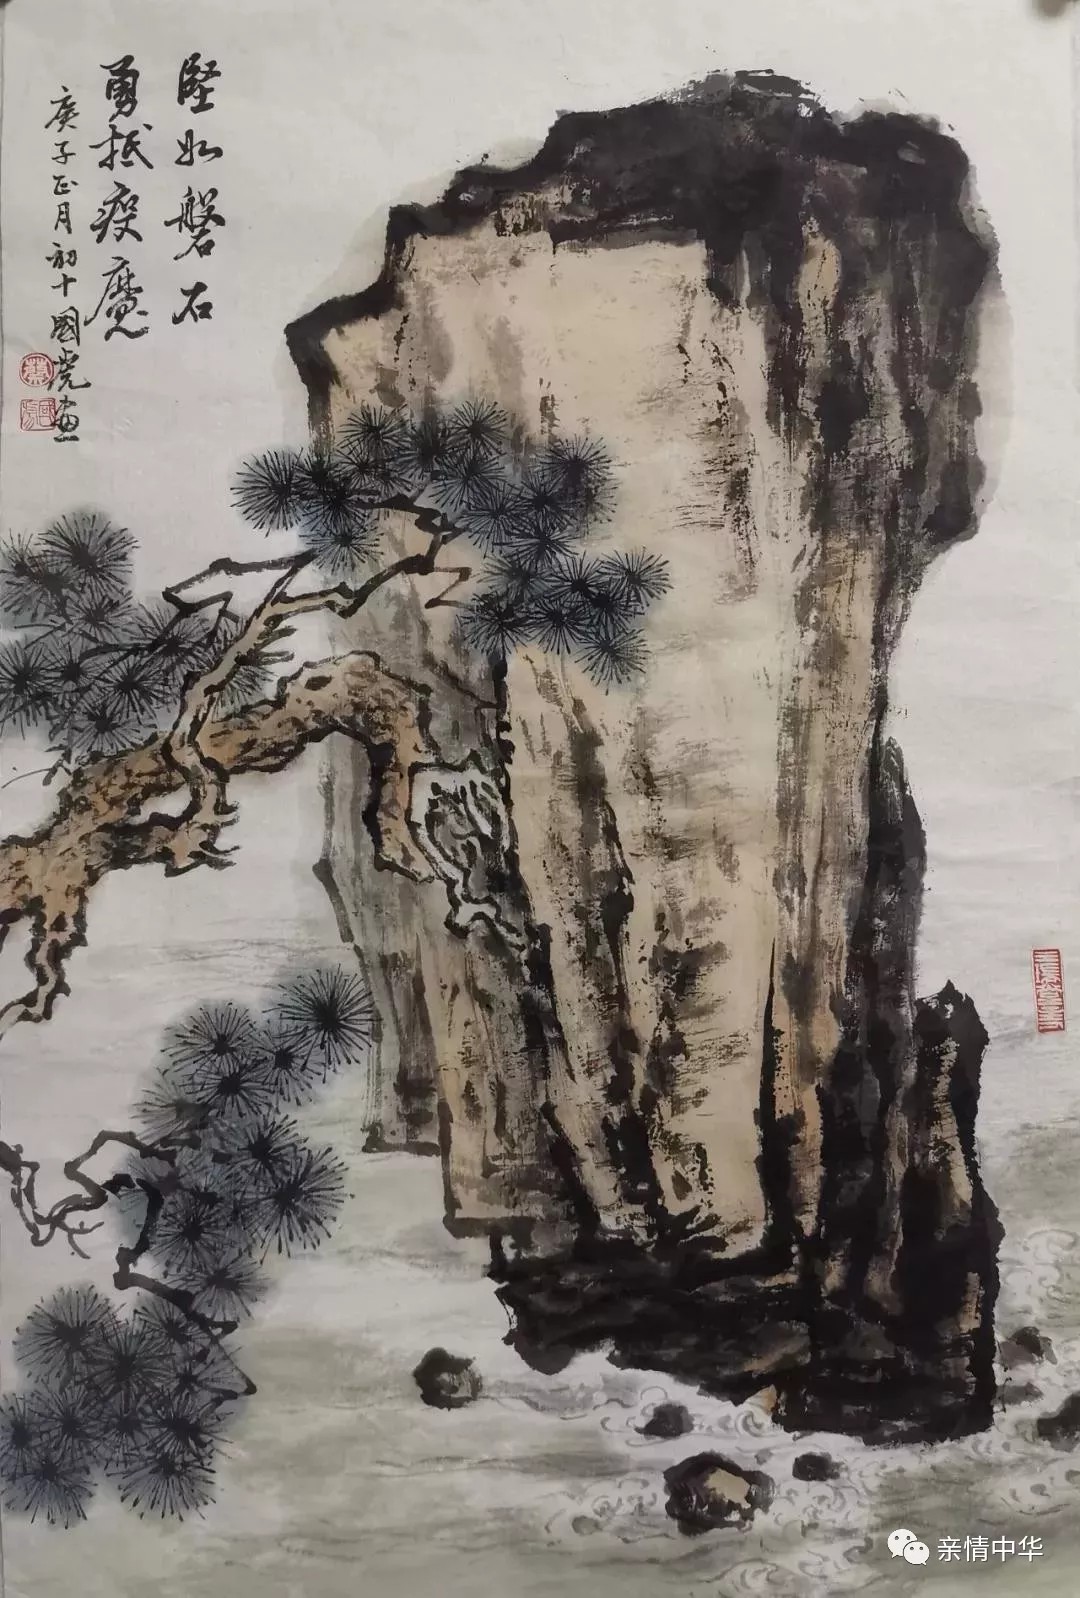 坚如磐石
勇抵疫魔
庚子正月初十國虎畫
亲情中华